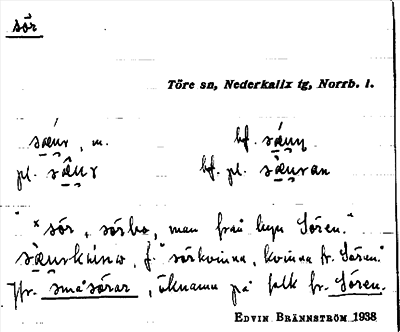 sör
Töre sn, Nederkalix tg, Norrb. l.
sæur, m. bf. sæuŋ
pl. sæur bf. pl. sæuran
"*sör, sörbo, man från byn Sören."
f. "sörkvinna, kvinna fr. Sören."
Jfr. småsörar, öknamn på folk fr. Sören.
EDVIN BRÄNNSTRÖM 1938